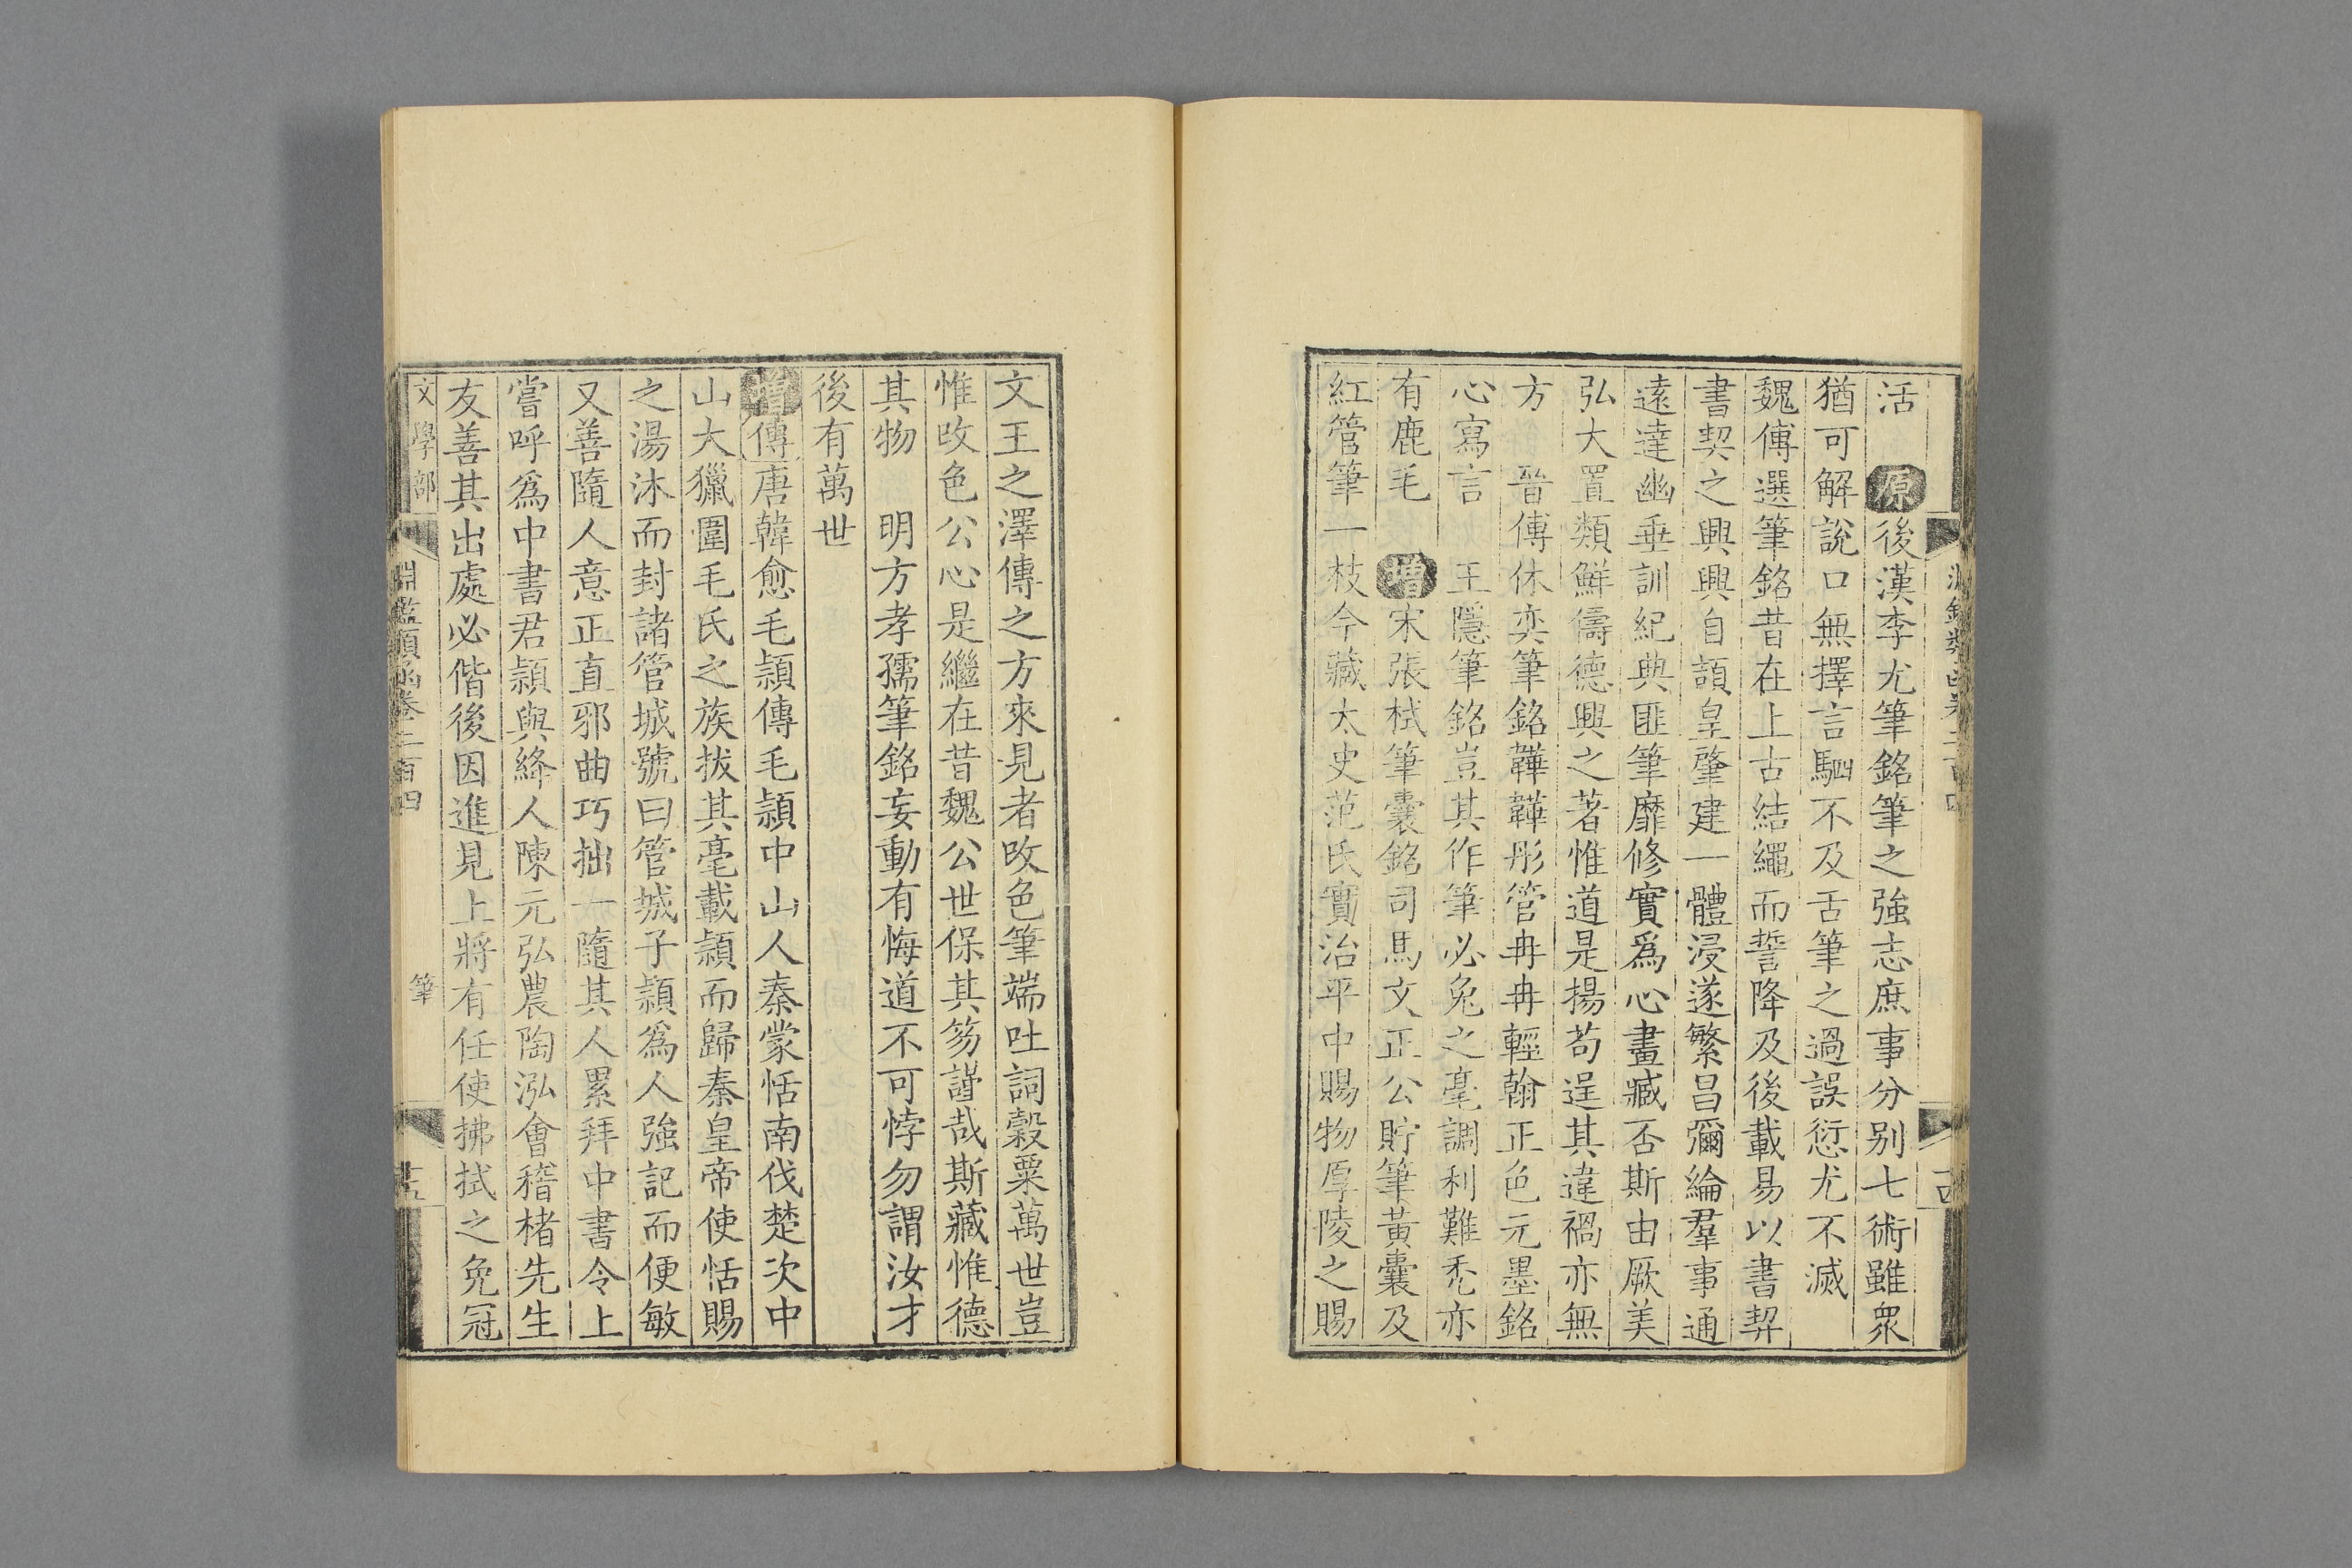 活 原後漢李尤筆銘筆之強志庶事分别七術雖衆
猶可解說口無擇言駟不及舌筆之過誤愆尤不滅
魏傅選筆銘昔在上古結繩而誓降及後載易以書契
書契之興興自頡皇肇建一體浸遂繁昌彌綸羣事通
遠達幽垂訓紀典匪筆靡修實爲心畫臧否斯由厥美
弘大置類鮮儔德興之著惟道是揚苟逞其違禍亦無
方 晉傅休奕筆銘韡韡彤管冉冉輕翰正色元墨銘
心寫言 王隱筆銘豈其作筆必兔之毫調利難禿亦
有鹿毛 增宋張栻筆囊銘司馬文正公貯筆黃囊及
紅管筆一枝今藏太史范氏實治平中賜物厚陵之賜
文王之澤傳之方來見者攺色筆端吐詞穀粟萬世豈
惟攺色公心是繼在昔魏公世保其笏謹哉斯藏惟德
其物 明方孝孺筆銘妄動有悔道不可悖勿謂汝才
後有萬世
增傳唐韓愈毛頴傳毛頴中山人秦蒙恬南伐楚次中
山大獵圍毛氏之族拔其毫載頴而歸秦皇帝使恬賜
之湯沐而封諸管城號曰管城子頴爲人強記而便敏
又善隨人意正直邪曲巧拙一隨其人累拜中書令上
嘗呼爲中書君頴與絳人陳元弘農陶泓會稽楮先生
友善其出處必偕後因進見上將有任使拂拭之免冠
文學部 淵鑑類函卷二百四 筆 十五